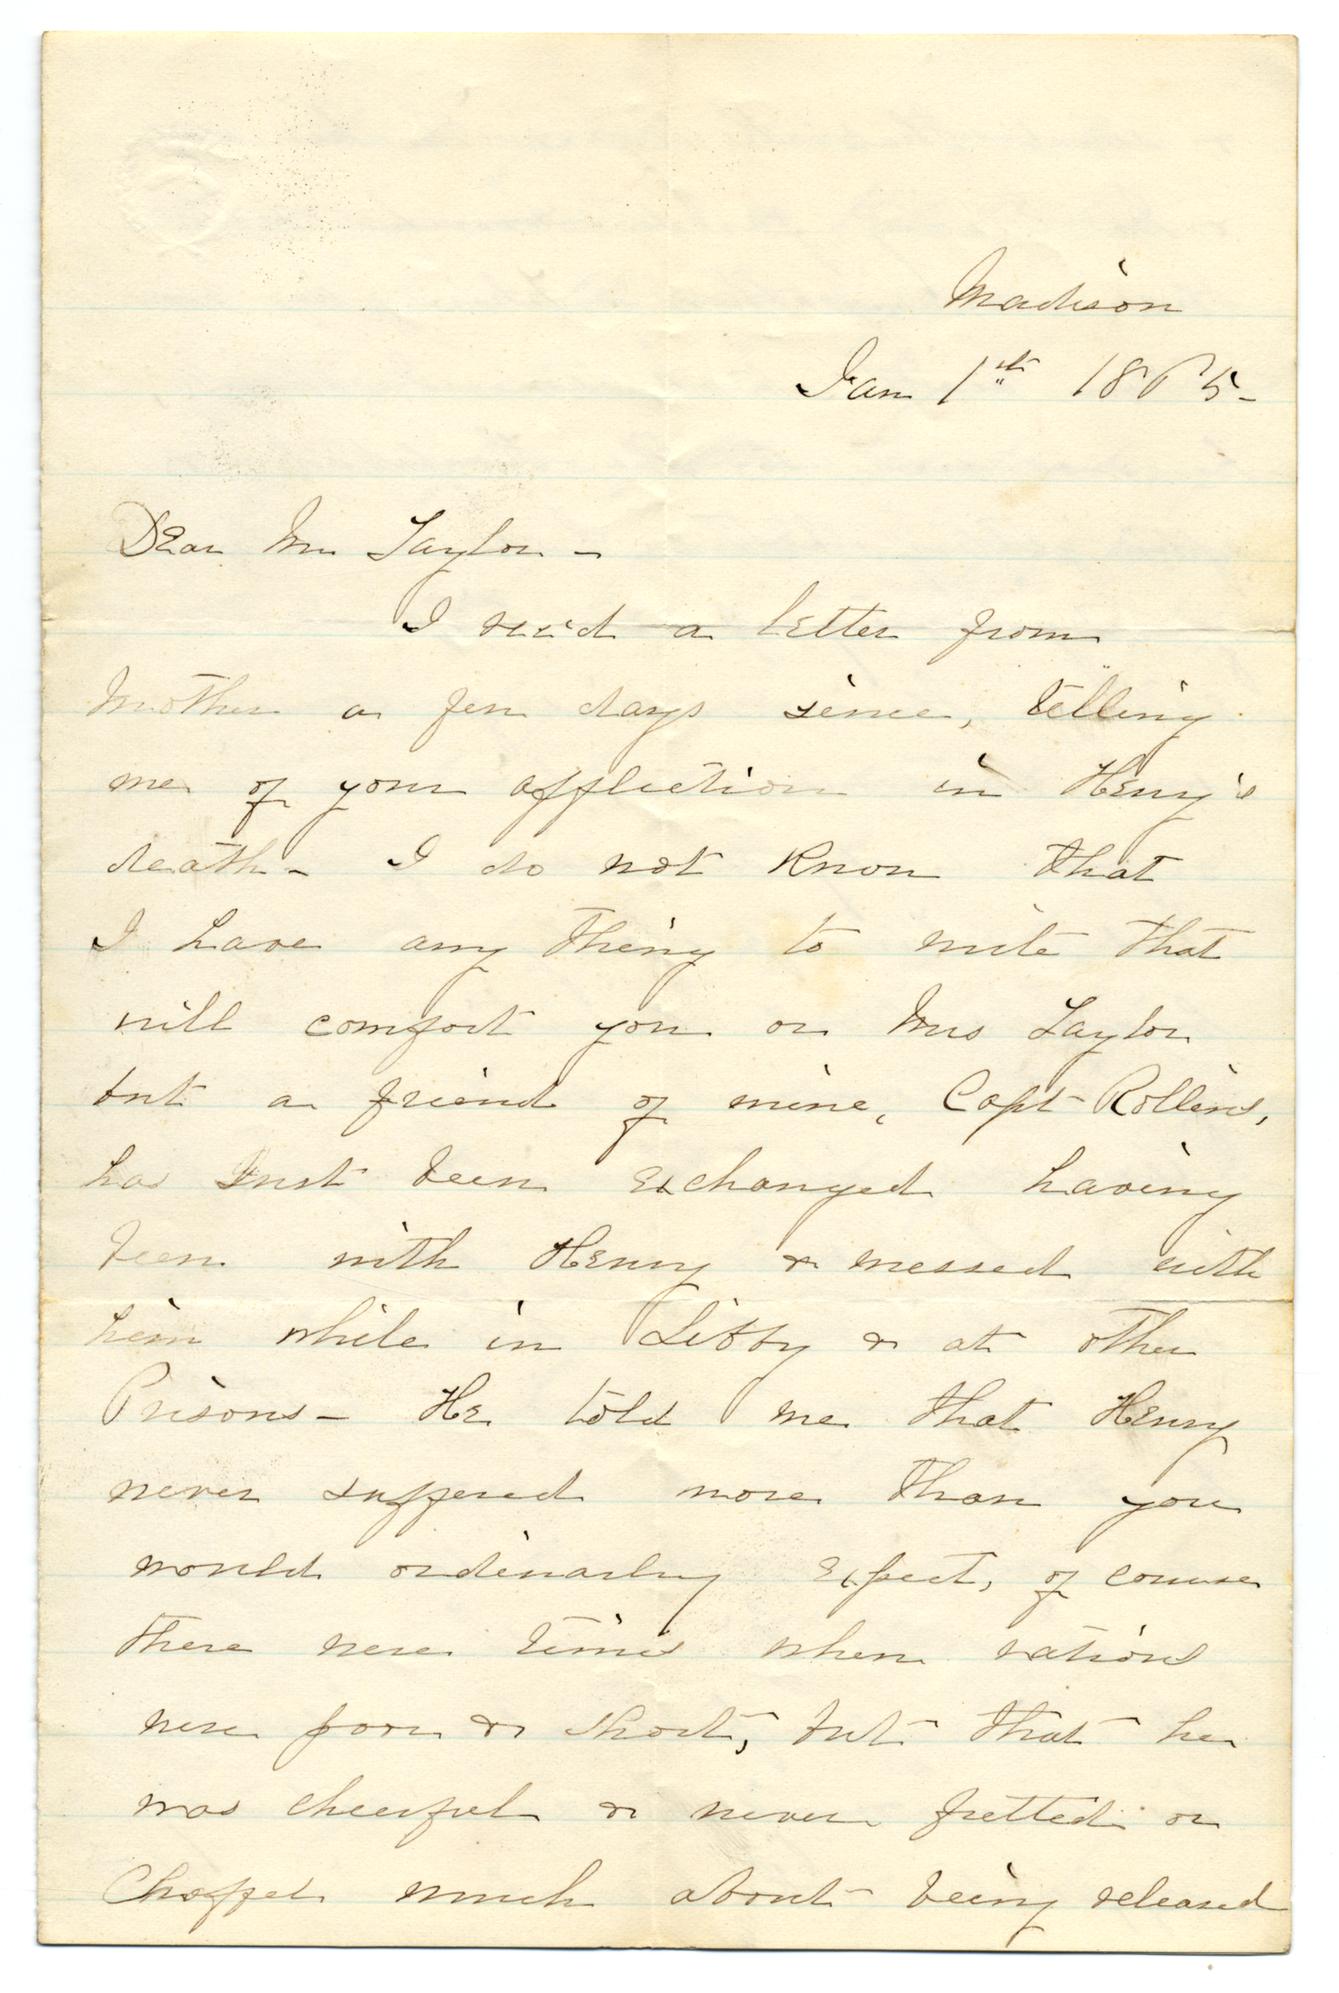 Madison
Jan 1st 1865-
Dear Mr Taylor -
I rec'd a letter from
Mother a few days since, telling
me of your affliction in Henry's
death - I do not know that
I have any thing to write that
will comfort you or Mrs Taylor
but a friend of mine, Capt Rollins,
has Just been exchanged having
been with Henry & messed with
him while in Libby & at other
Prisons - He told me that Henry
never suffered more than you
would ordinarly expect, of course
there were times when rations
were poor & short, but that he
was cheerful & never fretted or
much about being released